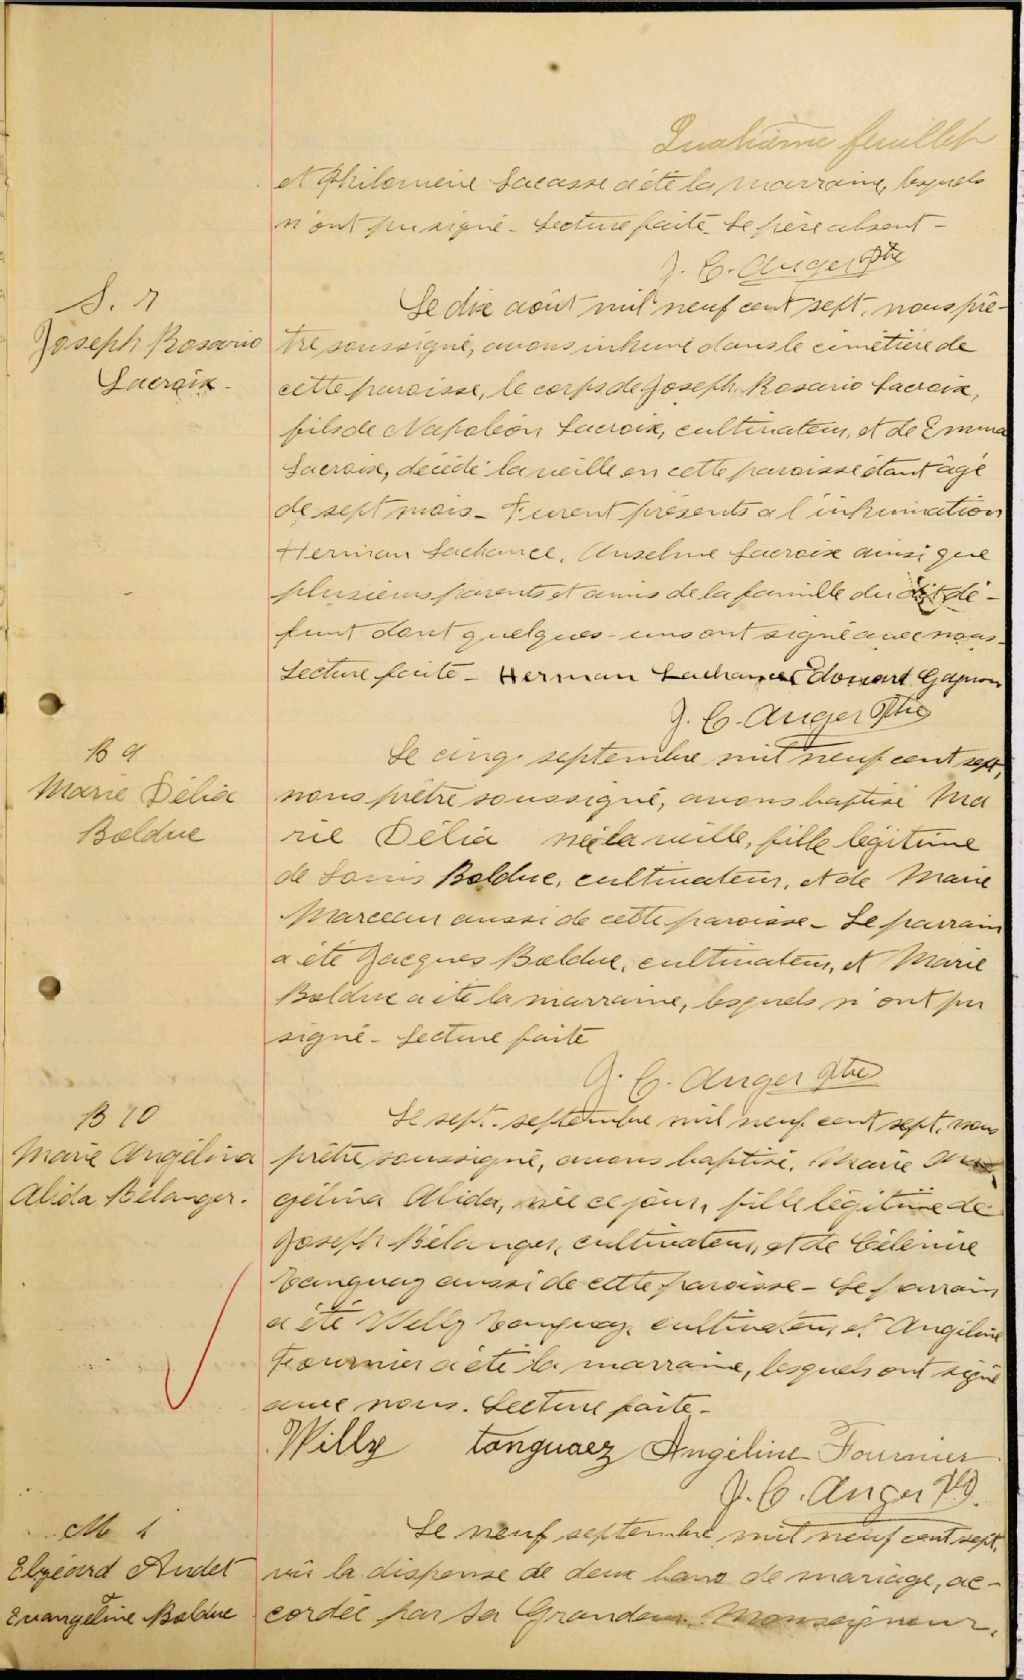 Quatrième feuillet
et Philomène Lacasse a été la marraine, lesquels
n'ont pu signé - Lecture faite - Le père absent -
J. C. Auger Ptre
S. 7
Joseph Rosario
Lacroix -
Le dix août mil neuf cent sept, nous prê-
tre soussigné, avons inhumé dans le cimetière de
cette paroisse, le corps de Joseph Rosario Lacroix,
fils de Napoléon Lacroix, cultivateur, et de Emma
Lacroix, décédé la veille en cette paroisse étant âgé
de sept mois - Furent présents à l'inhumation
Herman Lachance, Anselme Lacroix ainsi que
plusieurs parents et amis de la famille du dit dé-
funt dont quelques-uns ont signé avec nous -
Lecture faite - Herman Lachance Edouard Gagnon
J. C. Auger Ptre
B 9
Marie Délia
Bolduc
Le cinq septembre mil neuf cent sept,
nous prêtre soussigné, avons baptisé Ma
rie Délia née la veille, fille légitime
de Louis Bolduc, cultivateur, et de Marie
Marceau aussi de cette paroisse - Le parrain
a été Jacques Bolduc, cultivateur, et Marie
Bolduc a été la marraine, lesquels n'ont pu
signé - Lecture faite
J. C. Auger Ptre
B 10
Marie Angélina
Alida Bélanger.
Le sept septembre mil neuf cent sept, nous
prêtre soussigné, avons baptisé, Marie An
gélina Alida, née ce jour, fille légitime de
Joseph Bélanger, cultivateur, et de Célénire
Tanguay aussi de cette paroisse - Le parrain
a été Willy Tanguay, cultivateur, et Angéline
Fournier a été la marraine, lesquels ont signé
avec nous. Lecture faite -
Willy Tanguaez Angéline Fournier
J. C. Auger Ptre.
M 1
Elzéard Audet
Evangeline Bolduc
Le neuf septembre mil neuf cent sept,
vu la dispense de deux bans de mariage, ac-
cordée par Sa Grandeur Monseigneur,